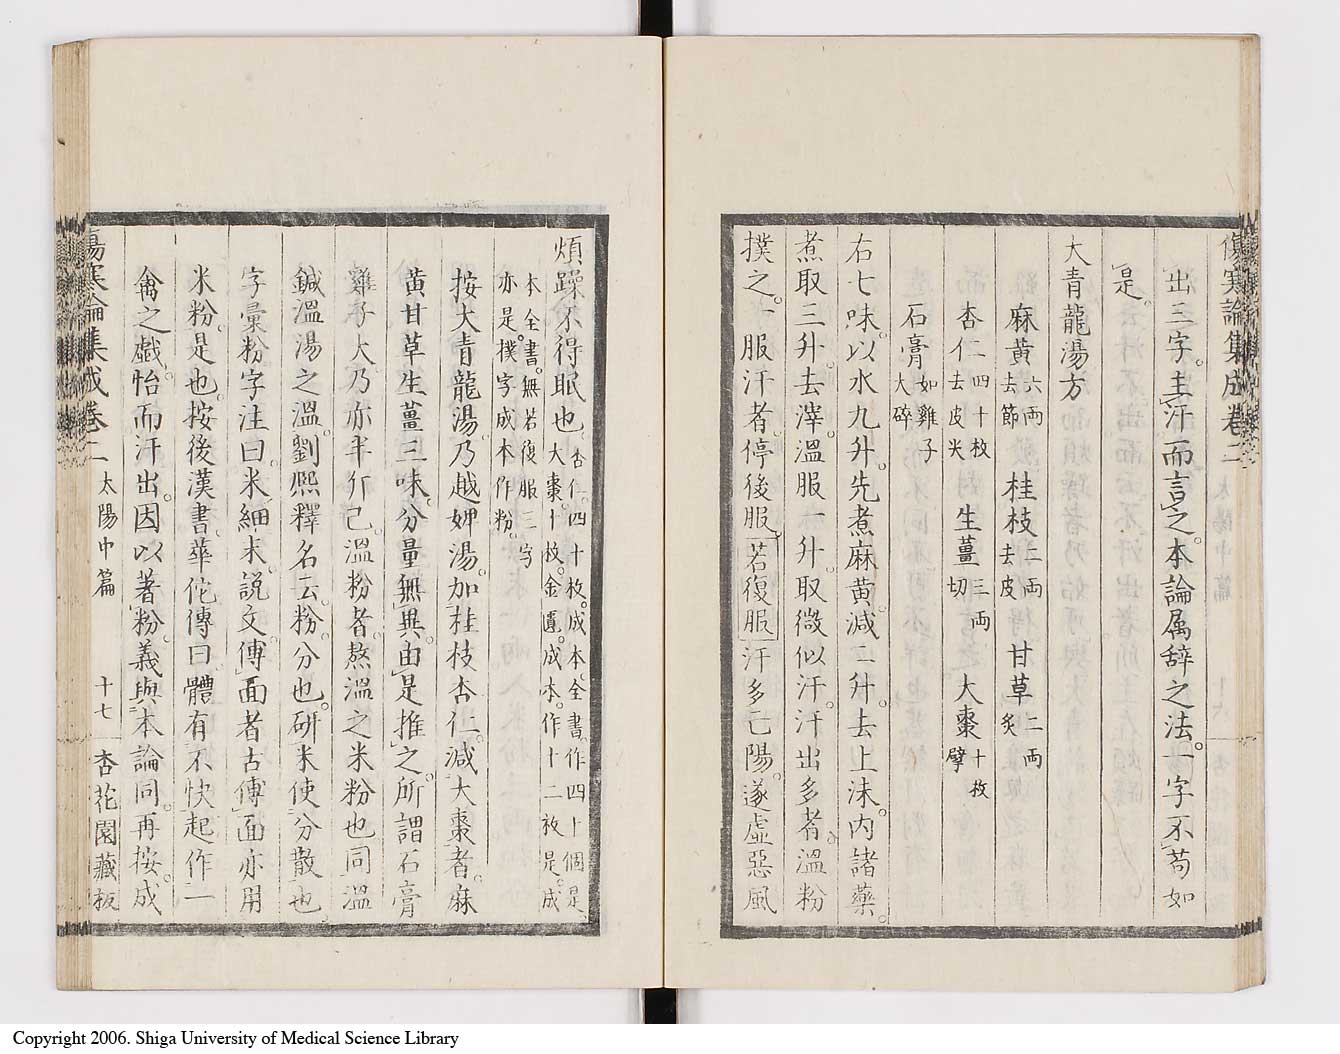 傷寒論集成卷二
出三字。主汗而言之。本論属辞之法。一字不苟如
是。
大青龍湯方
麻黄六両去節 桂枝二両去皮 甘草二両炙
杏仁四十枚去皮尖 生薑三両切 大棗十枚擘
石膏如雞子大碎
右七味。以水九升。先煮麻黄。減二升。去上沫。内諸藥。
煮取三升。去滓。温服一升。取微似汗。汗出多者。温粉
撲之。一服汗者停後服。若復服。汗多亡陽。遂虛惡風
煩躁不得眠也。杏仁。四十枚。成本。全書。作四十個。是。
大棗。十枚。金匱。成本。作十二枚。是。成
本。全書。無若復服三字
亦是。撲字成本作粉。
按大青龍湯。乃越婢湯。加桂枝杏仁。減大棗者。麻
黄甘草生薑三味。分量無異。由是推之。所謂石膏
雞子大乃亦半斤已。温粉者。熬温之米粉也同温
鍼温湯之温。劉熙釋名云。粉。分也。研米使分散也。
字彙粉字注曰。米細末。說文。傅面者古傅面亦用
米粉。是也。按後漢書。華佗傳曰。體有不快起作一
禽之戯。怡而汗出。因以著粉。義與本論同。再按。成
傷寒論集成卷二 太陽中篇 十七 杏花園藏板